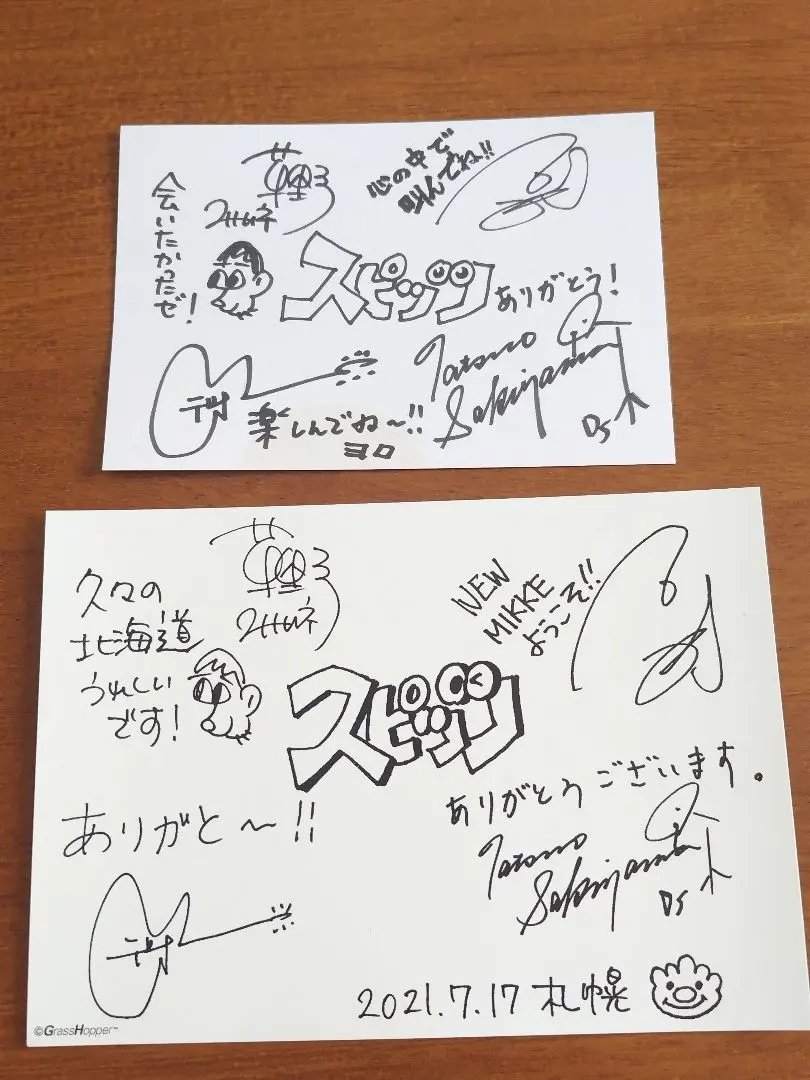 会いたかったぜ!
心の中で
叫んでね!!
スピッツ
ありがとう!
Tatsuo
Sakiyama
Ds
テツ
楽しんでね〜!!
ヨロ
久々の
北海道
うれしい
です!
NEW
MIKKE
ようこそ!!
スピッツ
ありがとうございます。
Tatsuo
Sakiyama
Ds
ありがと〜!!
テツ
2021.7.17 札幌
©GrassHopper™